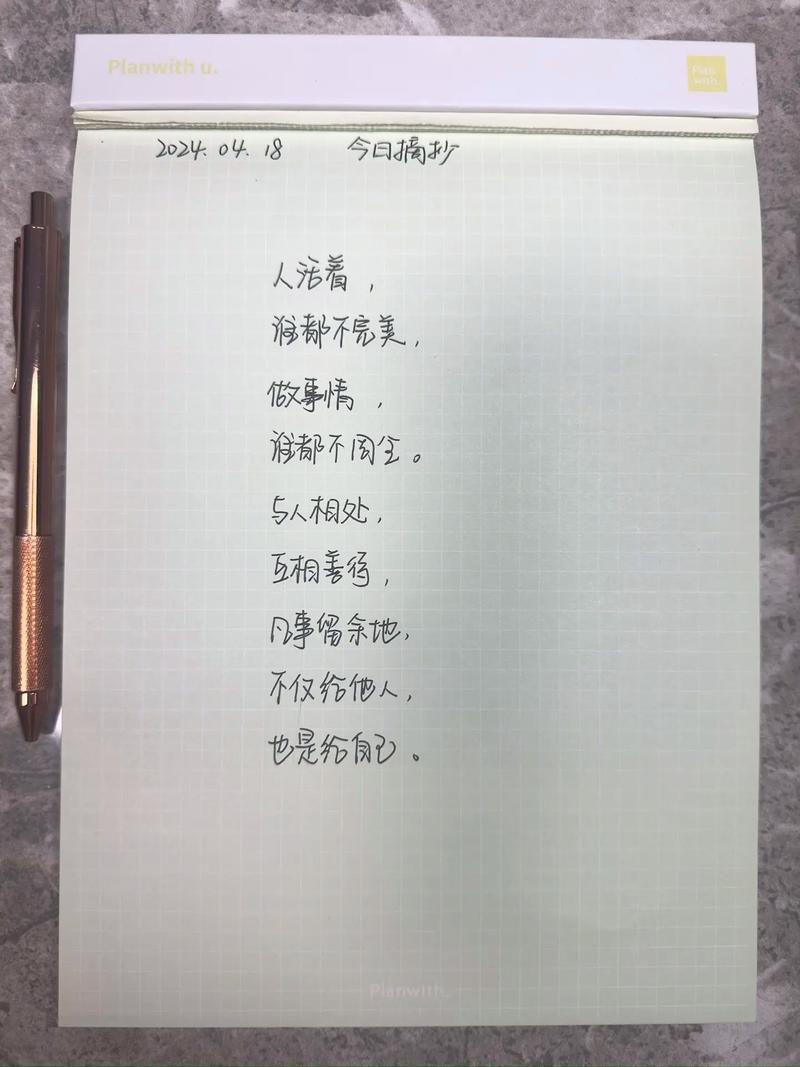 Planwith u.
Plan
with.
2024.04.18 今日摘抄
人活着，
谁都不完美，
做事情，
谁都不周全。
与人相处，
互相善待，
凡事留余地，
不仅给他人，
也是给自己。
Planwith.